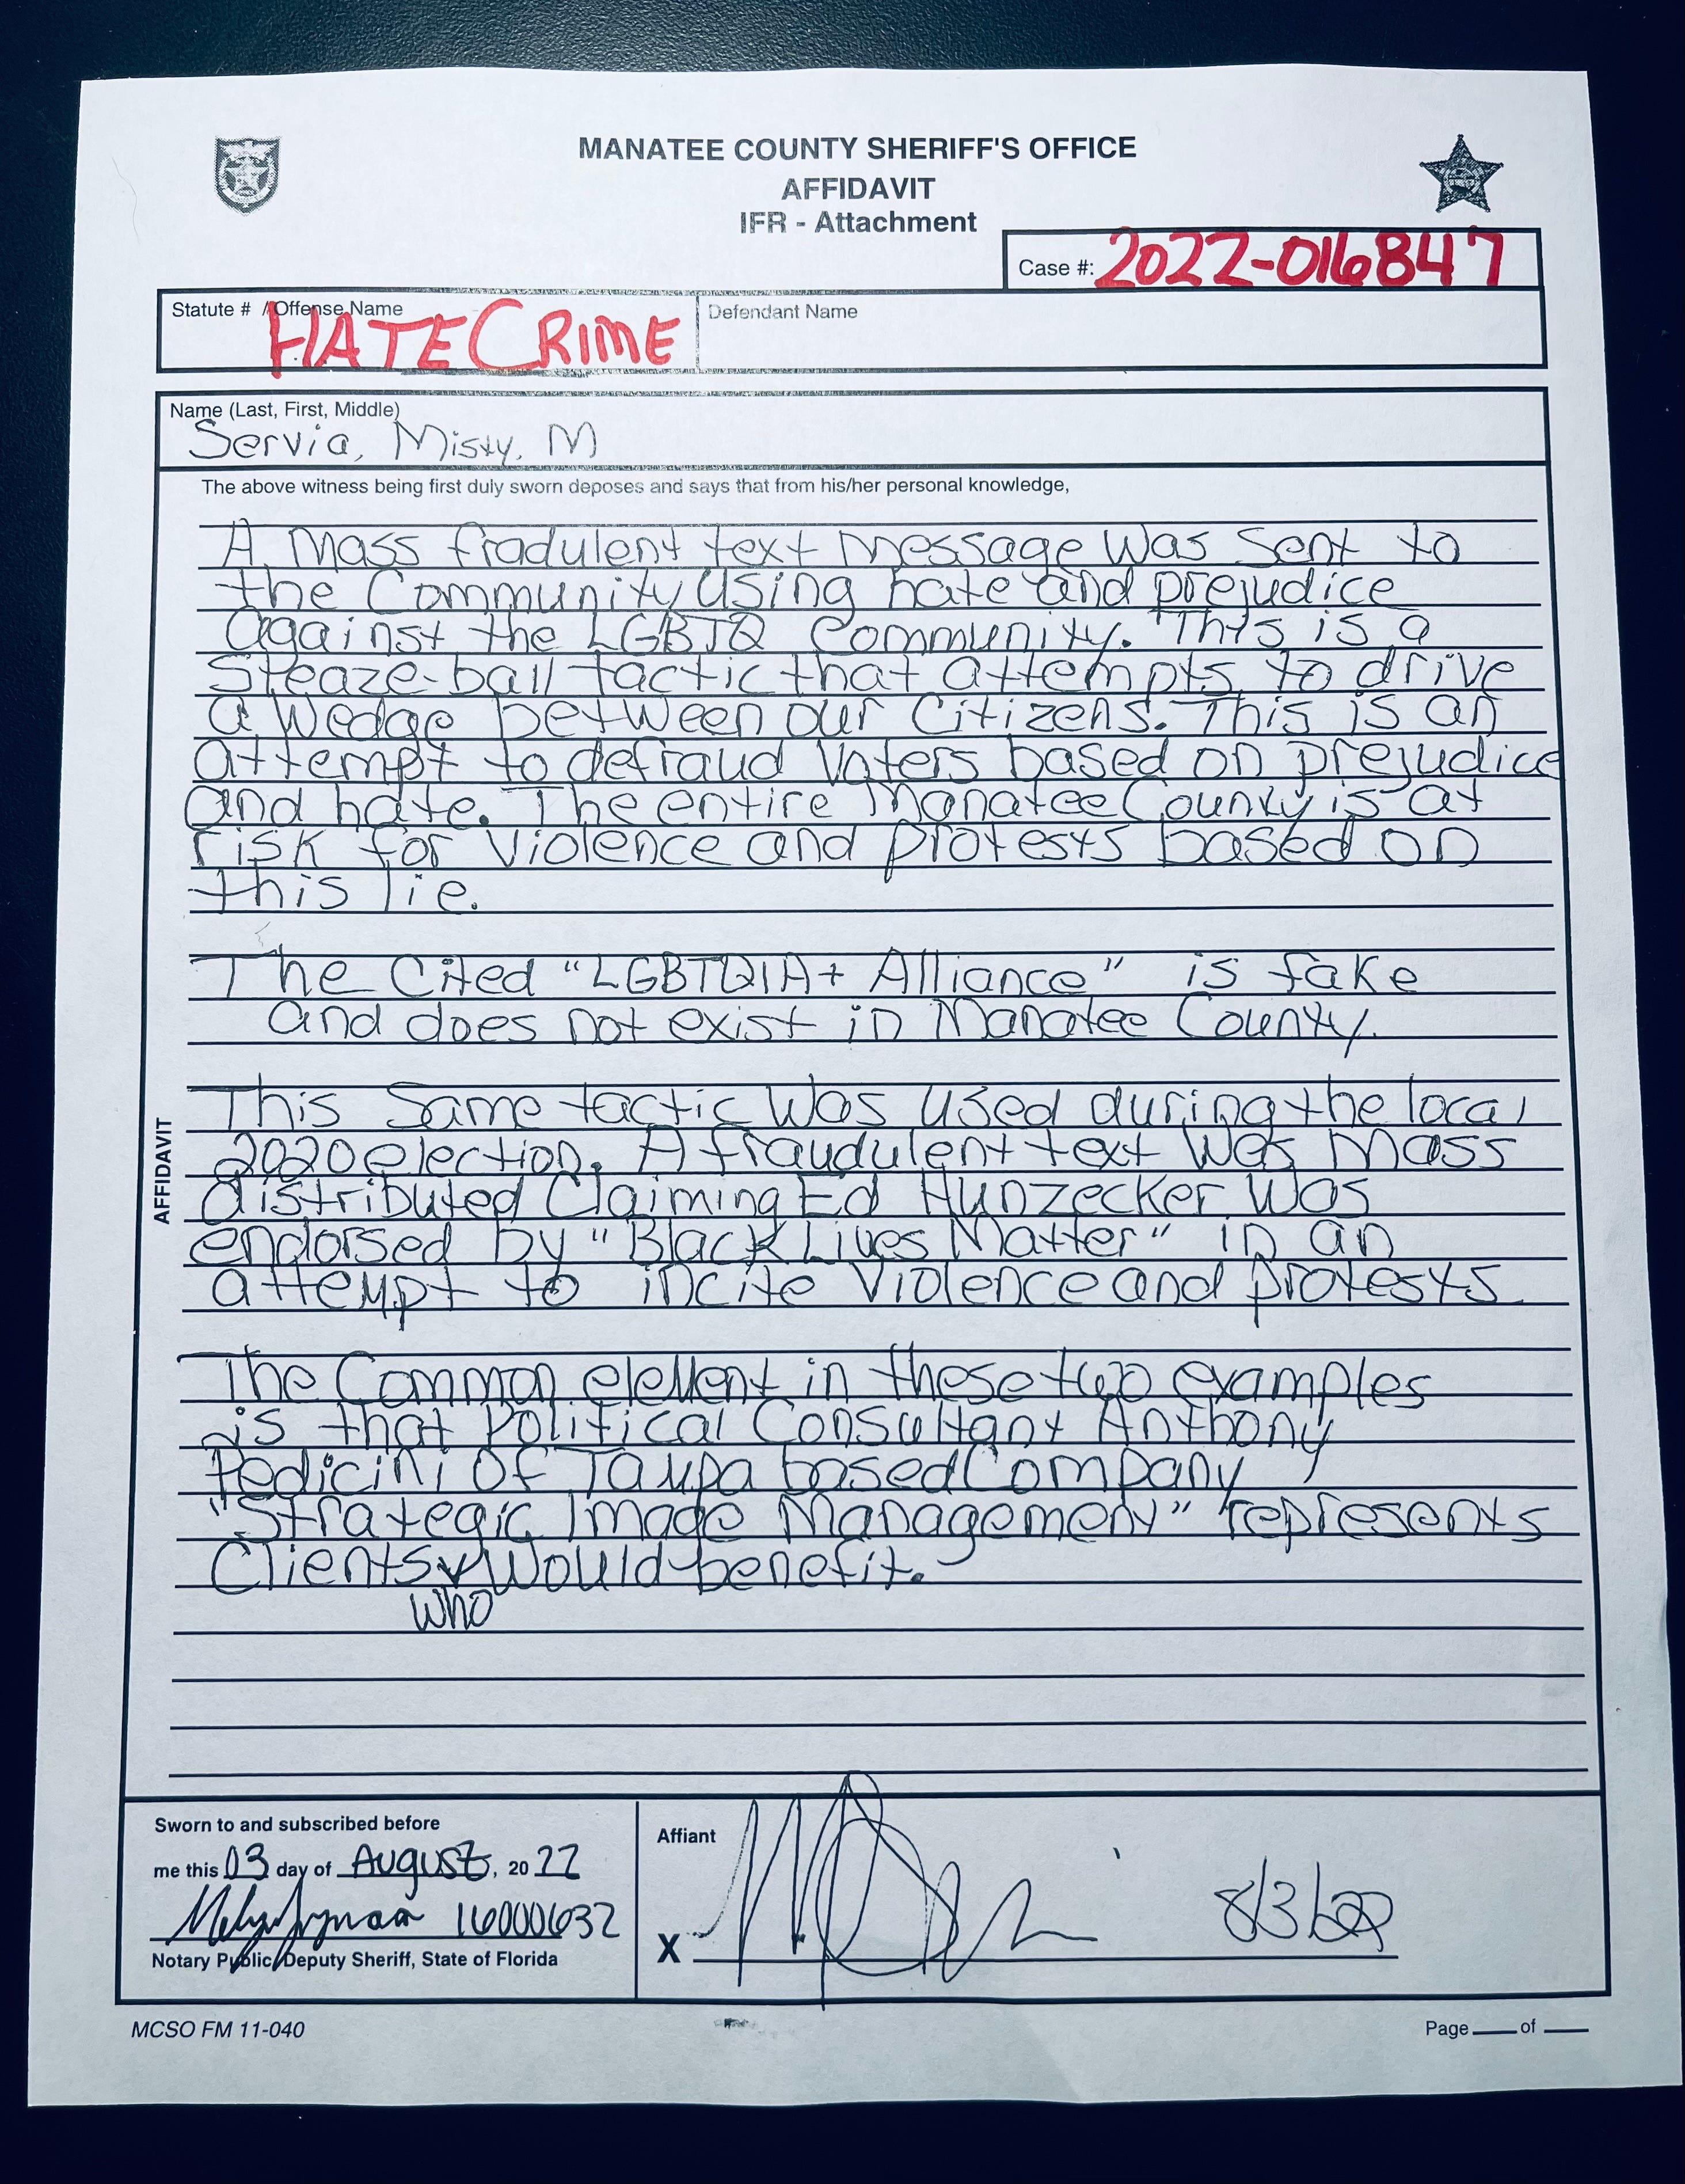 MANATEE COUNTY SHERIFF'S OFFICE
AFFIDAVIT
IFR - Attachment
Case #: 2022-016847
Statute # / Offense Name
HATE CRIME
Defendant Name
Name (Last, First, Middle)
Servia, Misty, M
The above witness being first duly sworn deposes and says that from his/her personal knowledge,
A Mass fradulent text message was sent to
the Community using hate and prejudice
against the LGBTQ Community. This is a
Sleaze-ball tactic that attempts to drive
a wedge between our Citizens. This is an
attempt to defraud Voters based on prejudice
and hate. The entire Manatee County is at
risk for violence and protests based on
this lie.
The Cited "LGBTQIA+ Alliance" is fake
and does not exist in Manatee County.
This Same tactic was used during the local
2020 election. A fraudulent text was Mass
distributed Claiming Ed Hunzecker was
endorsed by "Black Lives Matter" in an
attempt to incite violence and protests
The Common element in these two examples
is that Political Consultant Anthony
Pedicini of Tampa based Company
"Strategic Image Management" represents
Clients would benefit.
who
AFFIDAVIT
Sworn to and subscribed before
me this 03 day of August, 2022
160000632
Notary Public/Deputy Sheriff, State of Florida
Affiant
X 8/3/22
MCSO FM 11-040
Page of